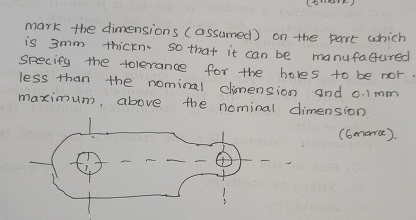 (6mark)
mark the dimensions (assumed) on the part which
is 3mm thickn. so that it can be manufactured
specify the tolerance for the holes to be not
less than the nominal dimension and 0.1mm
maximum, above the nominal dimension
(6mark).